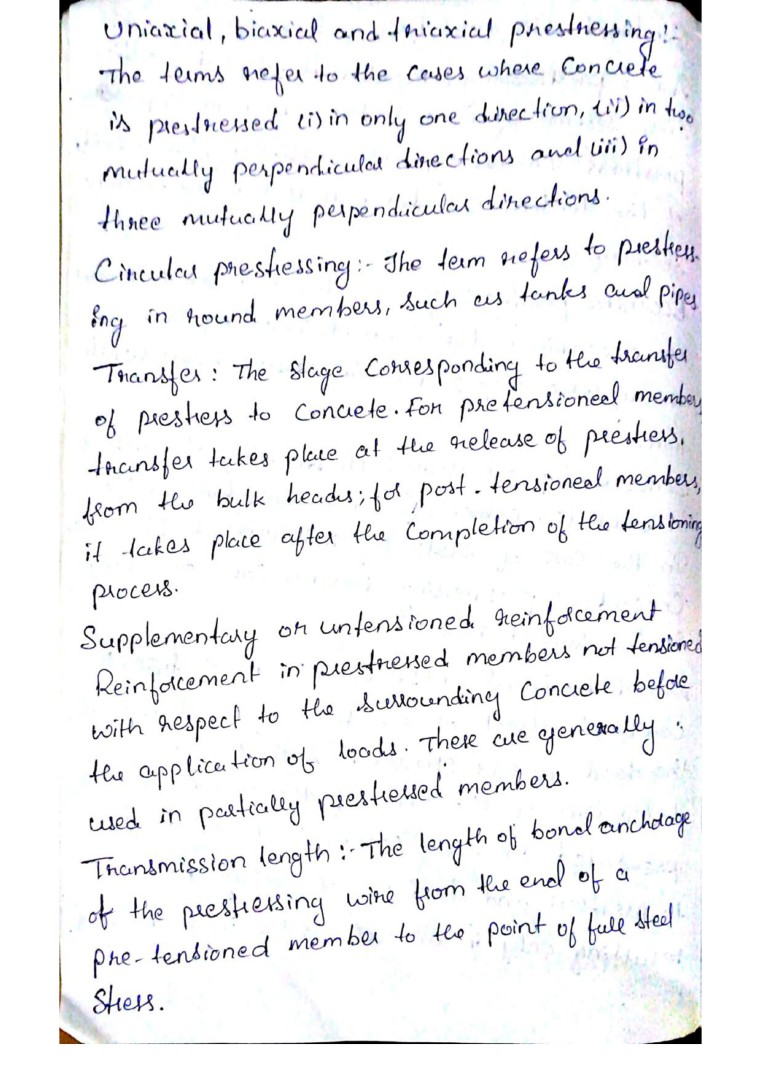 Uniaxial, biaxial and triaxial prestressing:-
The terms refer to the cases where, Concrete
is prestressed (i) in only one direction, (ii) in two
mutually perpendicular directions and (iii) in
three mutually perpendicular directions.
Circular prestressing:- The term refers to prestress-
ing in round members, such as tanks and pipes
Transfer: The stage Corresponding to the transfer
of prestress to Concrete. For pretensioned member,
transfer takes place at the release of prestress,
from the bulk heads; for post-tensioned members,
it takes place after the Completion of the tensioning
process.
Supplementary or untensioned reinforcement
Reinforcement in prestressed members not tensioned
with respect to the surrounding Concrete before
the application of loads. These are generally
used in partially prestressed members.
Transmission length:- The length of bond anchorage
of the prestressing wire from the end of a
pre-tensioned member to the point of full steel
Stress.